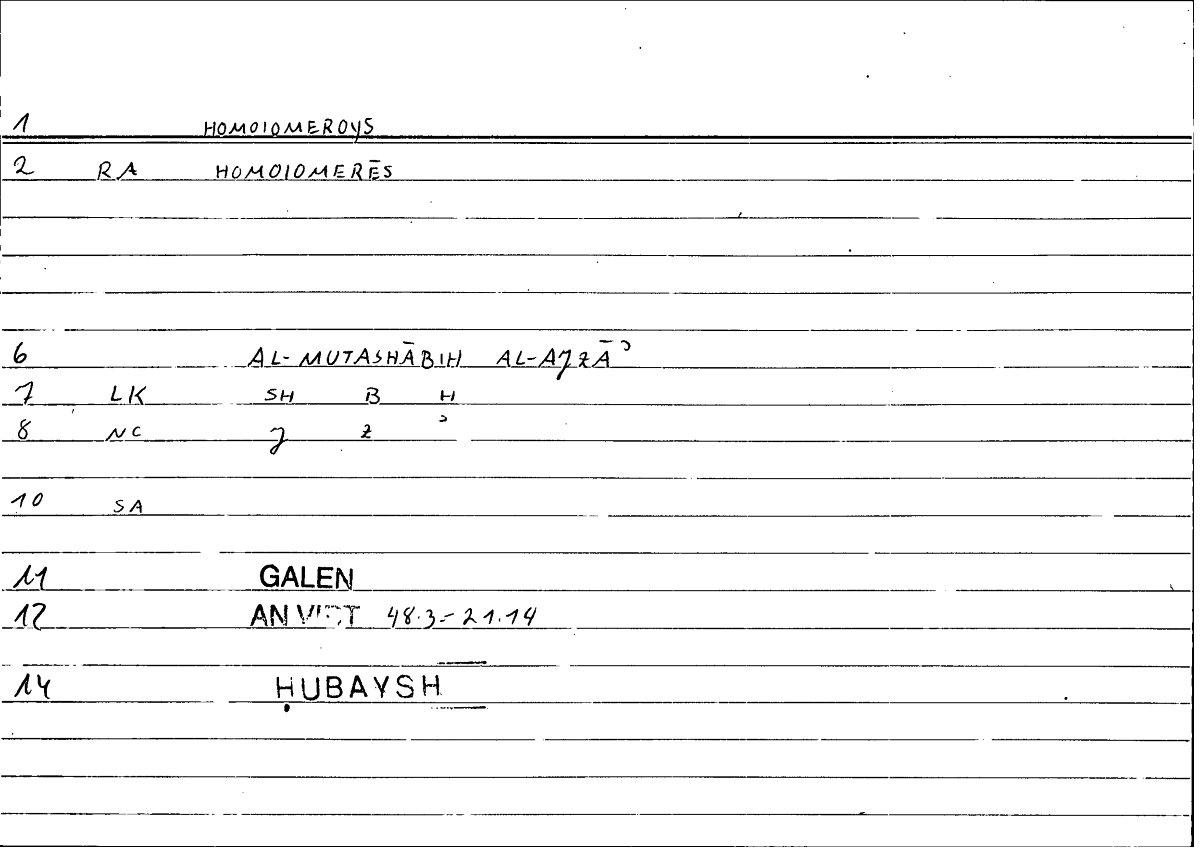 1 HOMOIOMEROYS
2 RA HOMOIOMERĒS
6 AL-MUTASHĀBIH AL-AJZĀʾ
7 LK SH B H
8 NC J Z ʾ
10 SA
11 GALEN
12 AN VIRT 48.3-21.14
14 ḤUBAYSH